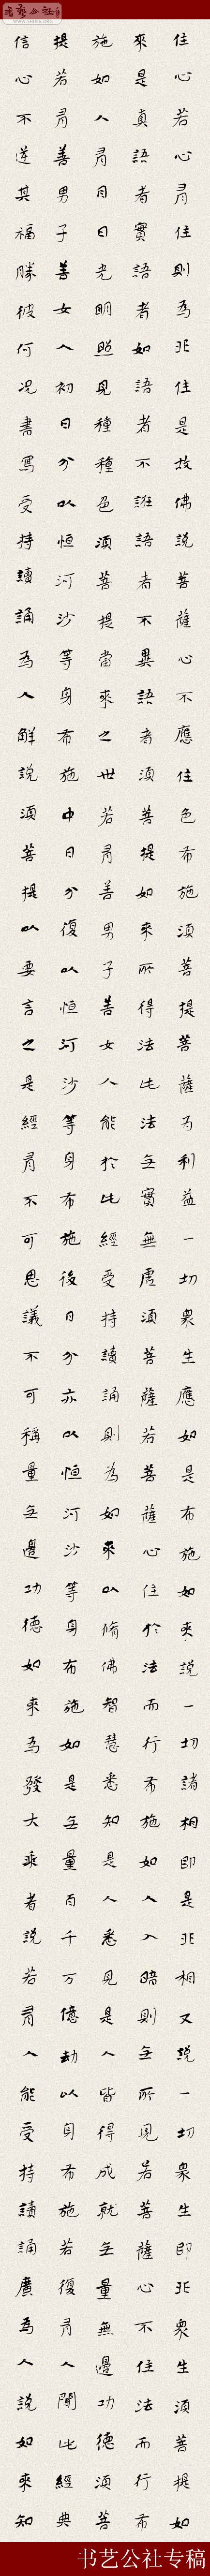 书艺公社
WWW.SHUFA.ORG
住心若心有住則為非住是故佛說菩薩心不應住色布施須菩提菩薩為利益一切眾生應如是布施如來說一切諸相即是非相又說一切眾生即非眾生須菩提如
來是真語者實語者如語者不誑語者不異語者須菩提如來所得法此法无實無虛須菩薩若菩薩心住於法而行布施如人入暗則无所見若菩薩心不住法而行布
施如人有目日光明照見種種色須菩提當來之世若有善男子善女人能於此經受持讀誦則為如來以脩佛智慧悉知是人悉見是人皆得成就无量無邊功德須菩
提若有善男子善女人初日分以恒河沙等身布施中日分復以恒河沙等身布施後日分亦以恒河沙等身布施如是无量百千万億劫以身布施若復有人聞此經典
信心不逆其福勝彼何況書寫受持讀誦為人解說須菩提以要言之是經有不可思議不可稱量无邊功德如來為發大乘者說若有人能受持讀誦廣為人說如來知
书艺公社专稿